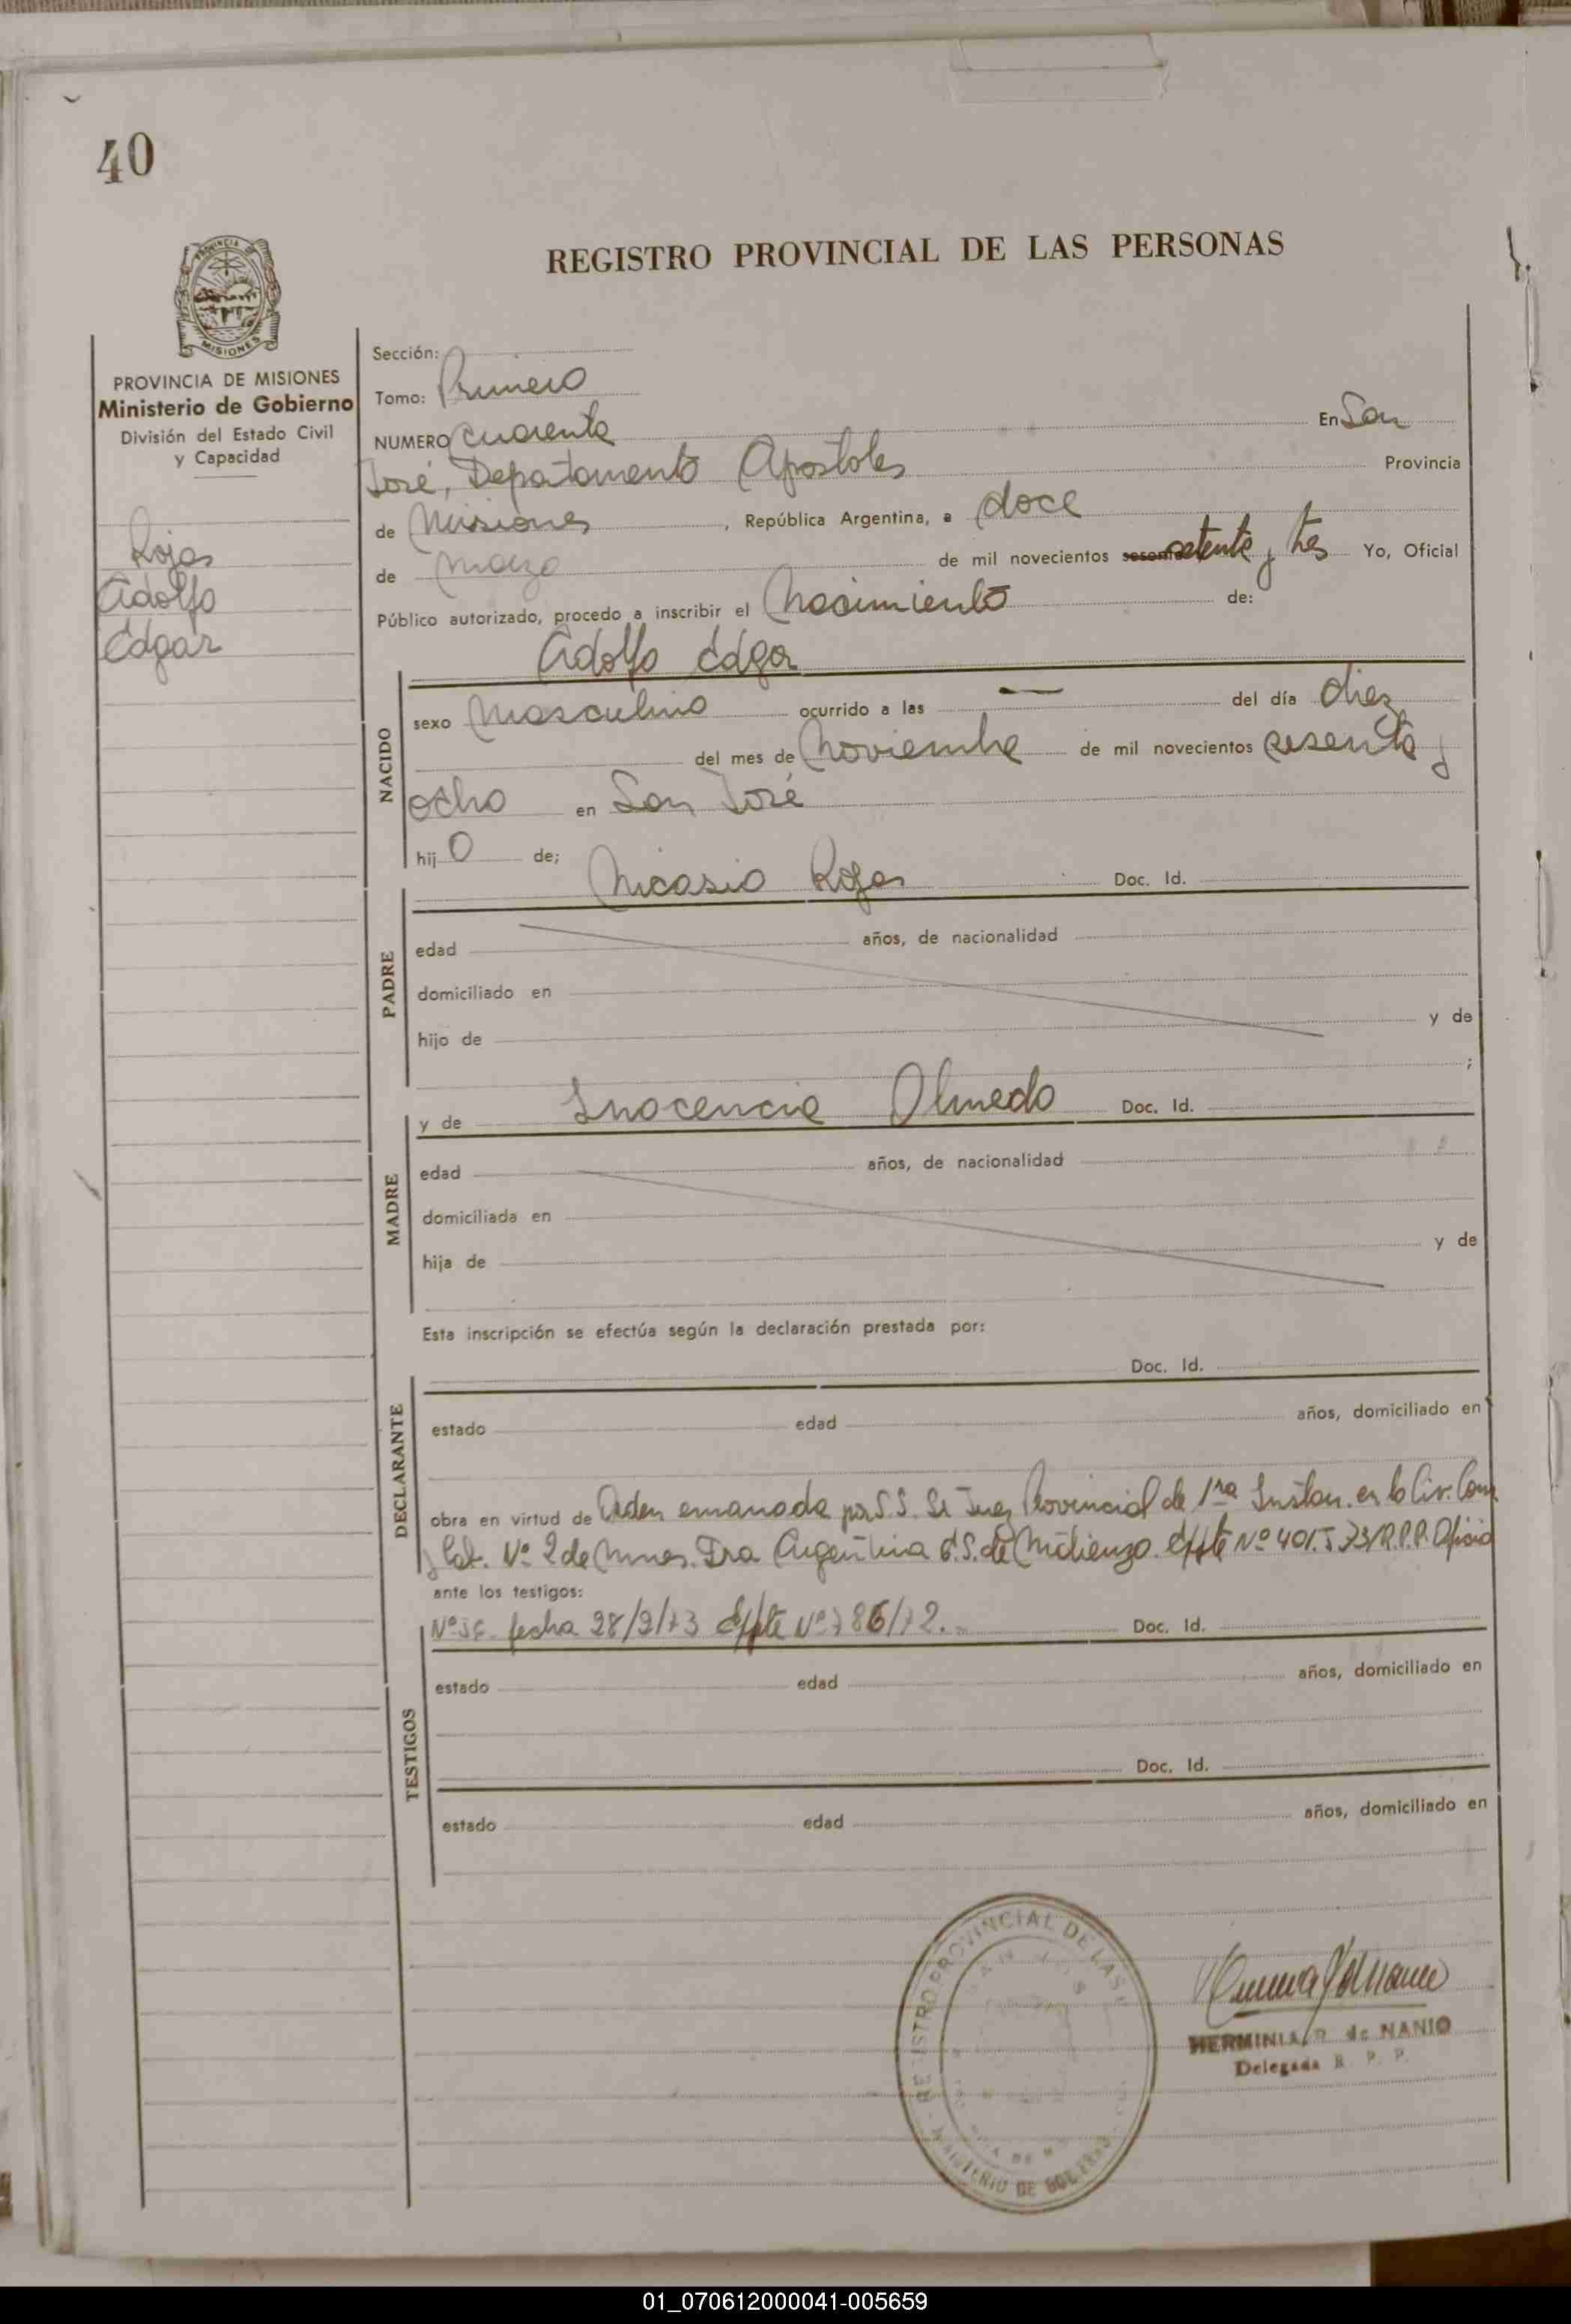 40
REGISTRO PROVINCIAL DE LAS PERSONAS
PROVINCIA
MISIONES
PROVINCIA DE MISIONES
Ministerio de Gobierno
División del Estado Civil
y Capacidad
Rojas
Adolfo
Edgar
Sección:
Tomo: Primero
NUMERO Cuarenta En San
José, Departamento Apostoles Provincia
de Misiones, República Argentina, a doce
de marzo de mil novecientos sesenta setenta y tres Yo, Oficial
Público autorizado, procedo a inscribir el Nacimiento de:
Adolfo Edgar
NACIDO
sexo Masculino ocurrido a las — del día diez
del mes de Noviembre de mil novecientos sesenta y
ocho en San José
hijo de;
Nicasio Rojas Doc. Id.
PADRE
edad años, de nacionalidad
domiciliado en
hijo de y de
;
y de Inocencia Olmedo Doc. Id.
MADRE
edad años, de nacionalidad
domiciliada en
hija de y de
Esta inscripción se efectúa según la declaración prestada por:
Doc. Id.
DECLARANTE
estado edad años, domiciliado en
obra en virtud de Orden emanada por S.S. Sr Juez Provincial de 1ra Instan. en lo Civ. Com
y Lab. Nº 2 de Mnes. Dra Argentina S. de Expte Nº 401. J. 73/R.P.P. Oficio
ante los testigos:
fecha 28/2/73 Expte Nº 786/72. Doc. Id.
TESTIGOS
estado edad años, domiciliado en
Doc. Id.
estado edad años, domiciliado en
REGISTRO PROVINCIAL DE LAS
MINISTERIO DE GOBIERNO
HERMINIA R. de NANIO
Delegada R. P. P.
01_070612000041-005659